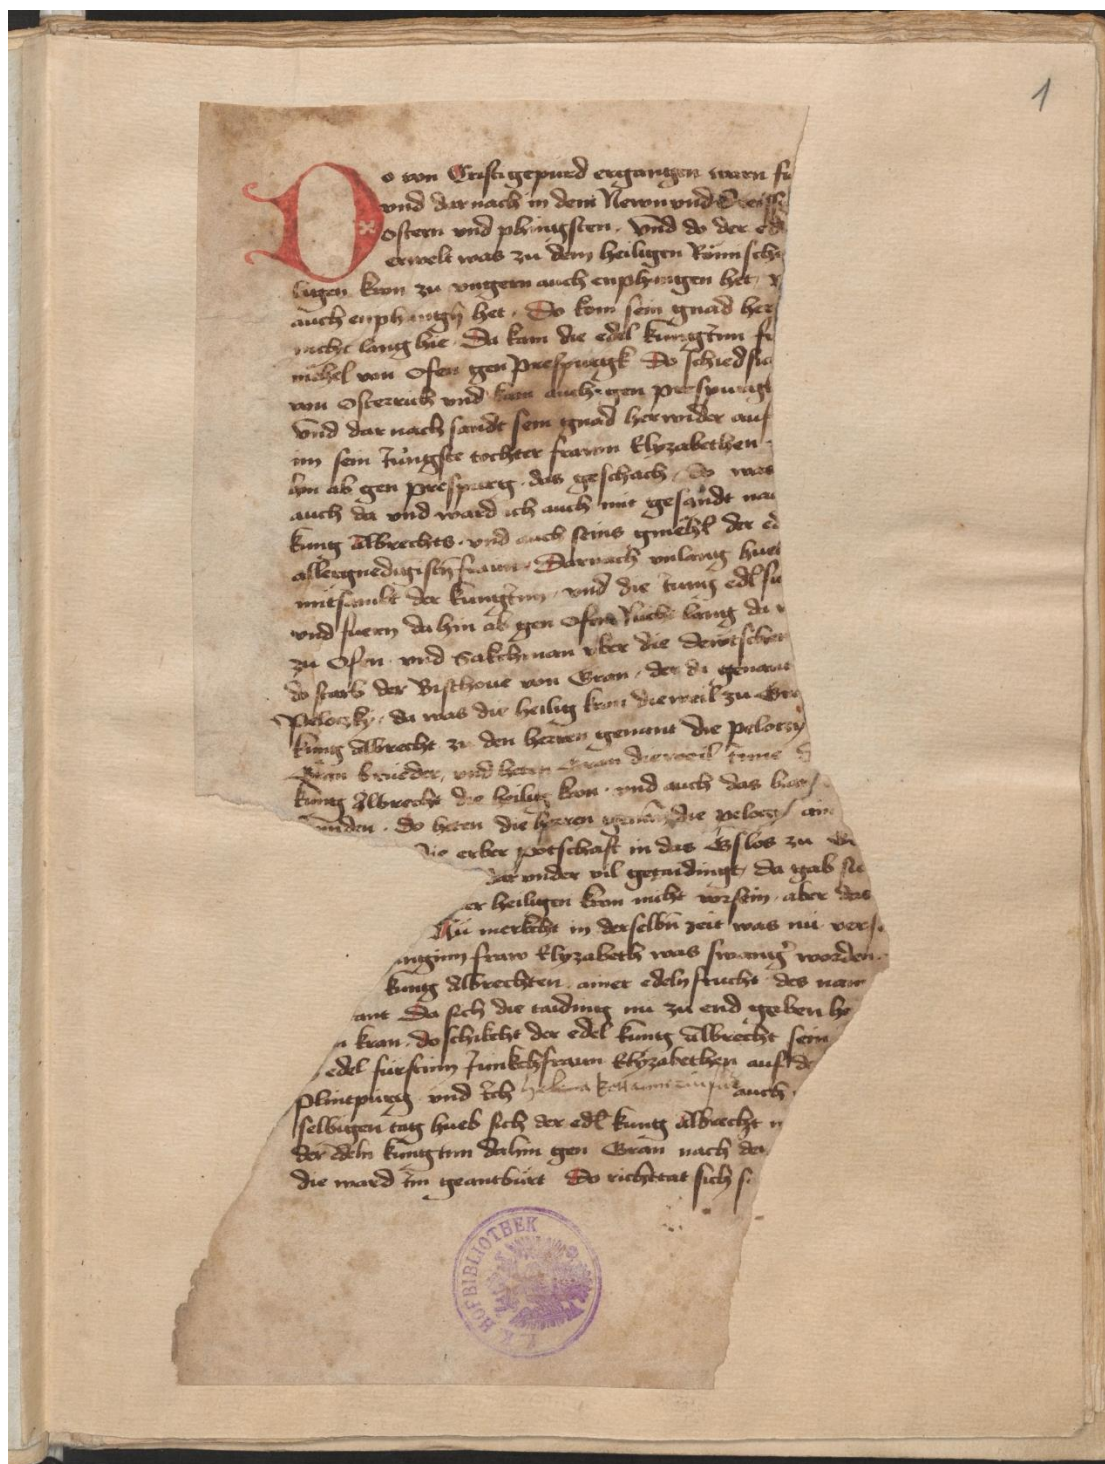 1
Do von Cristi gepurd ergangen warn
vnd darnach in dem Newn vnd
Ostern vnd phingsten. Vnd do der
erwelt was zu dem heiligen Römisch
ligen kron zu vngern auch enphangen het
auch enphangen het. Do kom sein gnad her
nicht lang hie. Da kam die edel kunginn
mehel von Ofen gen Prespurgk Do schied
von Osterrich vnd kam auch gen prespurg
Vnd darnach sandt sein gnad herwider auf
im sein Jüngste tochter frawn Elyzabethen
hin ab gen prespurg. das geschach. do was
auch da vnd ward ich auch mit gesandt
kung Albrechts. vnd auch seins gmehl der
allergnedigistn frawn. Darnach vnlang hueb
mitsambt der kunginn. vnd die Jung edl
vnd fuern dahin ab gen Ofen Nicht lang da
zu Ofen. vnd Sakchman vber die dewtschen
do starb der Bischoue von Gran. der da genant
Peloczky. da was die heilig kron dieweil zu
kung Albrecht zu den herren genant die peloczy
brueder. vnd herrn dieweil Inne
kung Albrecht die heilig kron. vnd auch das
unden. Do heten die herren genant die peloczy
die erber potschaft in das Gslos zu
dar vnder vil getaidingt. da gab
er heiligen kron nicht vorsein. aber das
Nu merkcht in derselbn zeit was nu
unginn fraw Elyzabeth was swanger worden
kung Albrechten. ainer edeln frucht. des
ant Da sich die taiding nu zu end geben
n kran. do schikcht der edel kung Albrecht sein
edel fürstinn Junkchfrawn Elyzabethen auf
Plintpurg. vnd Ich Helena kottannerin auch
selbigen tag hueb sich der edl kung Albrecht
der edeln kunginn dahin gen Gran nach
die ward im geantburt Do richttat sich
K. K. HOFBIBLIOTHEK